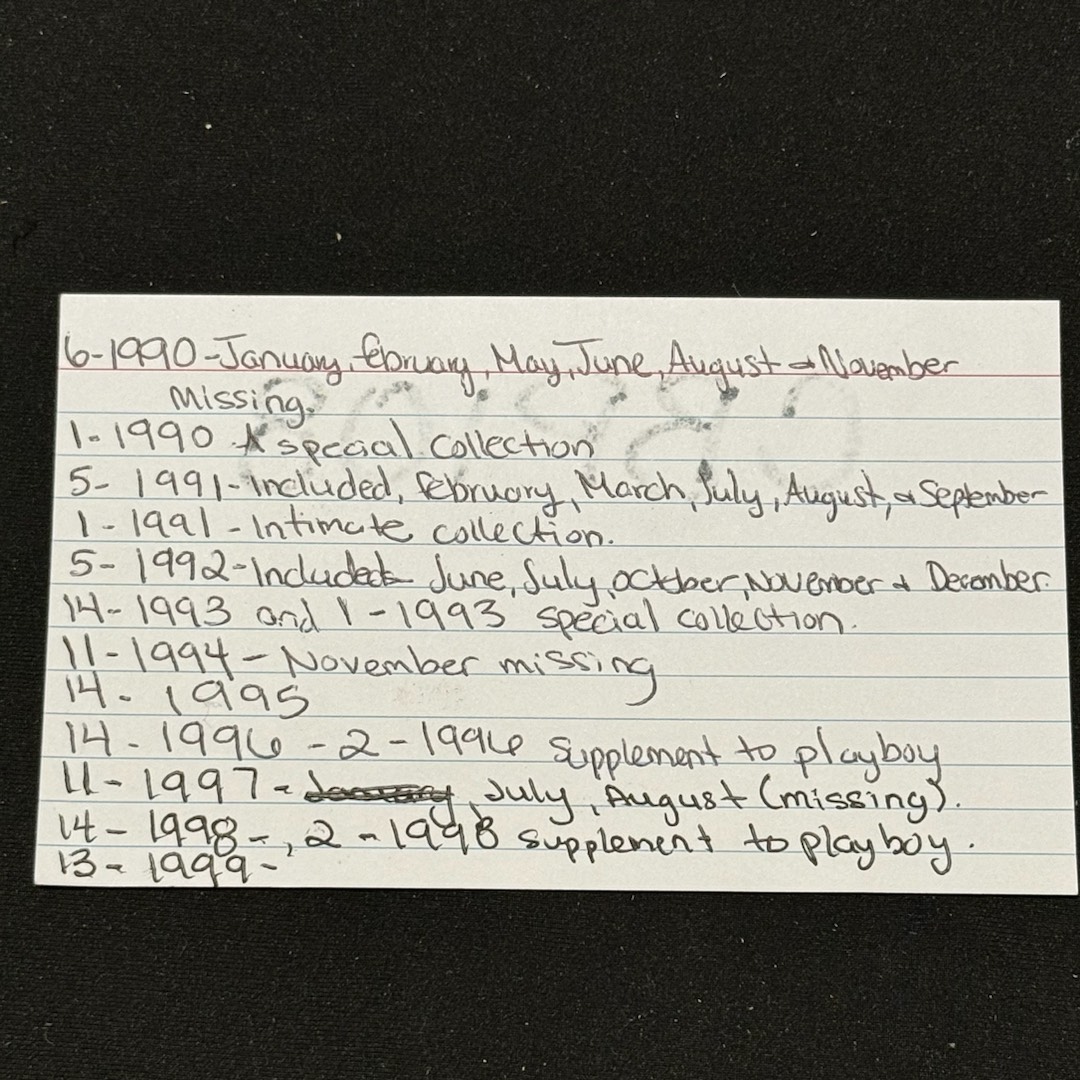 6-1990-January, february, May, June, August & November
Missing.
1-1990 A special collection
5- 1991-Included, february, March, July, August, & September
1-1991-Intimate collection.
5- 1992-Included June, July, october, November & December.
14-1993 and 1-1993 special collection.
11-1994-November missing
14- 1995
14-1996-2-1996 supplement to playboy
11-1997- July, August (missing).
14-1998-, 2-1998 supplement to playboy.
13-1999-